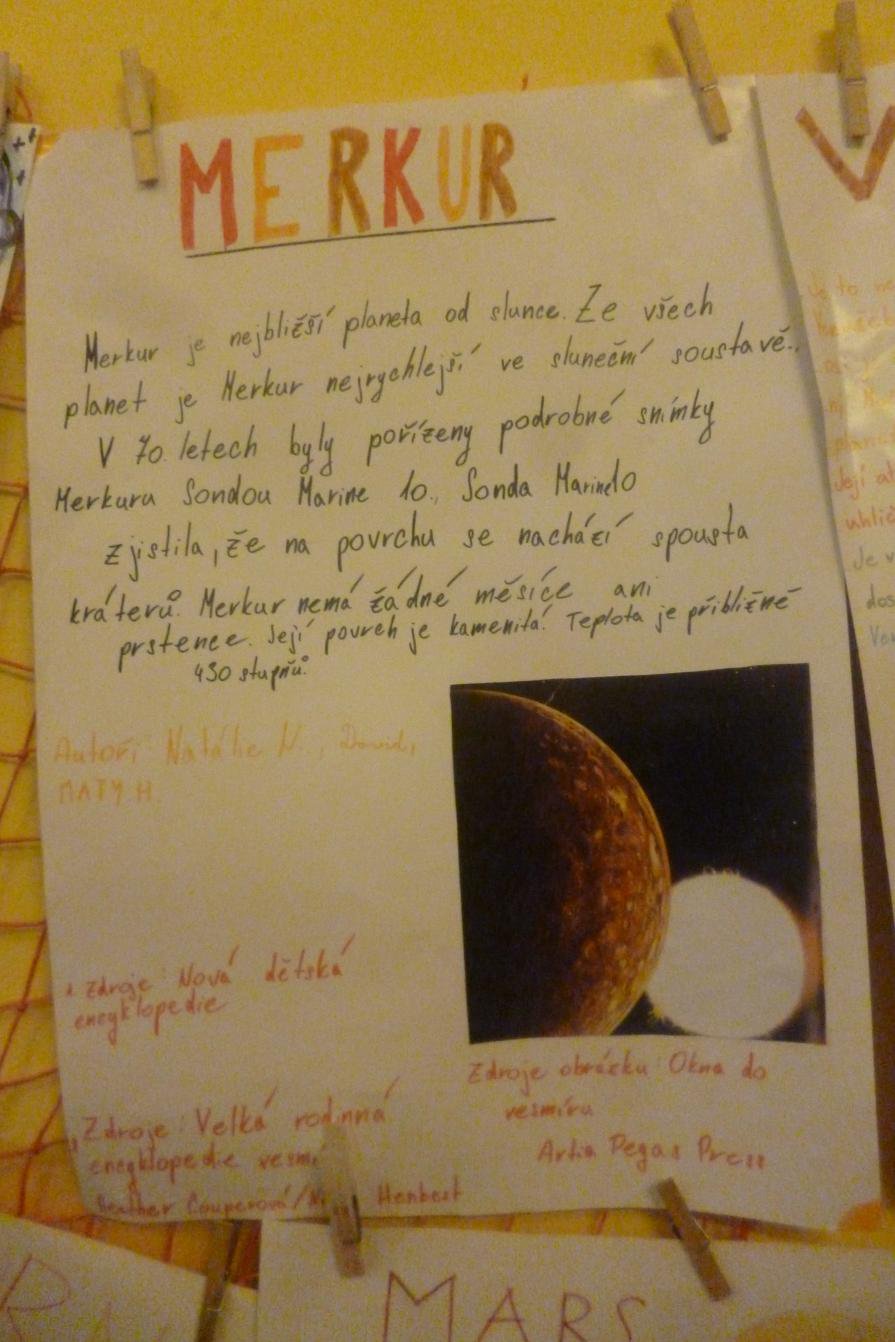 MERKUR
Merkur je nejbližší planeta od slunce. Ze všech
planet je Merkur nejrychlejší ve sluneční soustavě.
V 70. letech byly pořízeny podrobné snímky
Merkuru Sondou Marine 10., Sonda Marine10
zjistila, že na povrchu se nachází spousta
kráterů. Merkur nemá žádné měsíce ani
prstence. Její povrch je kamenitá. Teplota je přibližně
430 stupňů.
Autoři: Natálie N., David,
MATY H.
Zdroje: Nová dětská
encyklopedie
Zdroje: Velká rodinná
encyklopedie
Heather Couperová/ Henbest
Zdroje obrázku: Okna do
vesmíru
Artia Pegas Press
V
Je to
Její
Je v
MARS